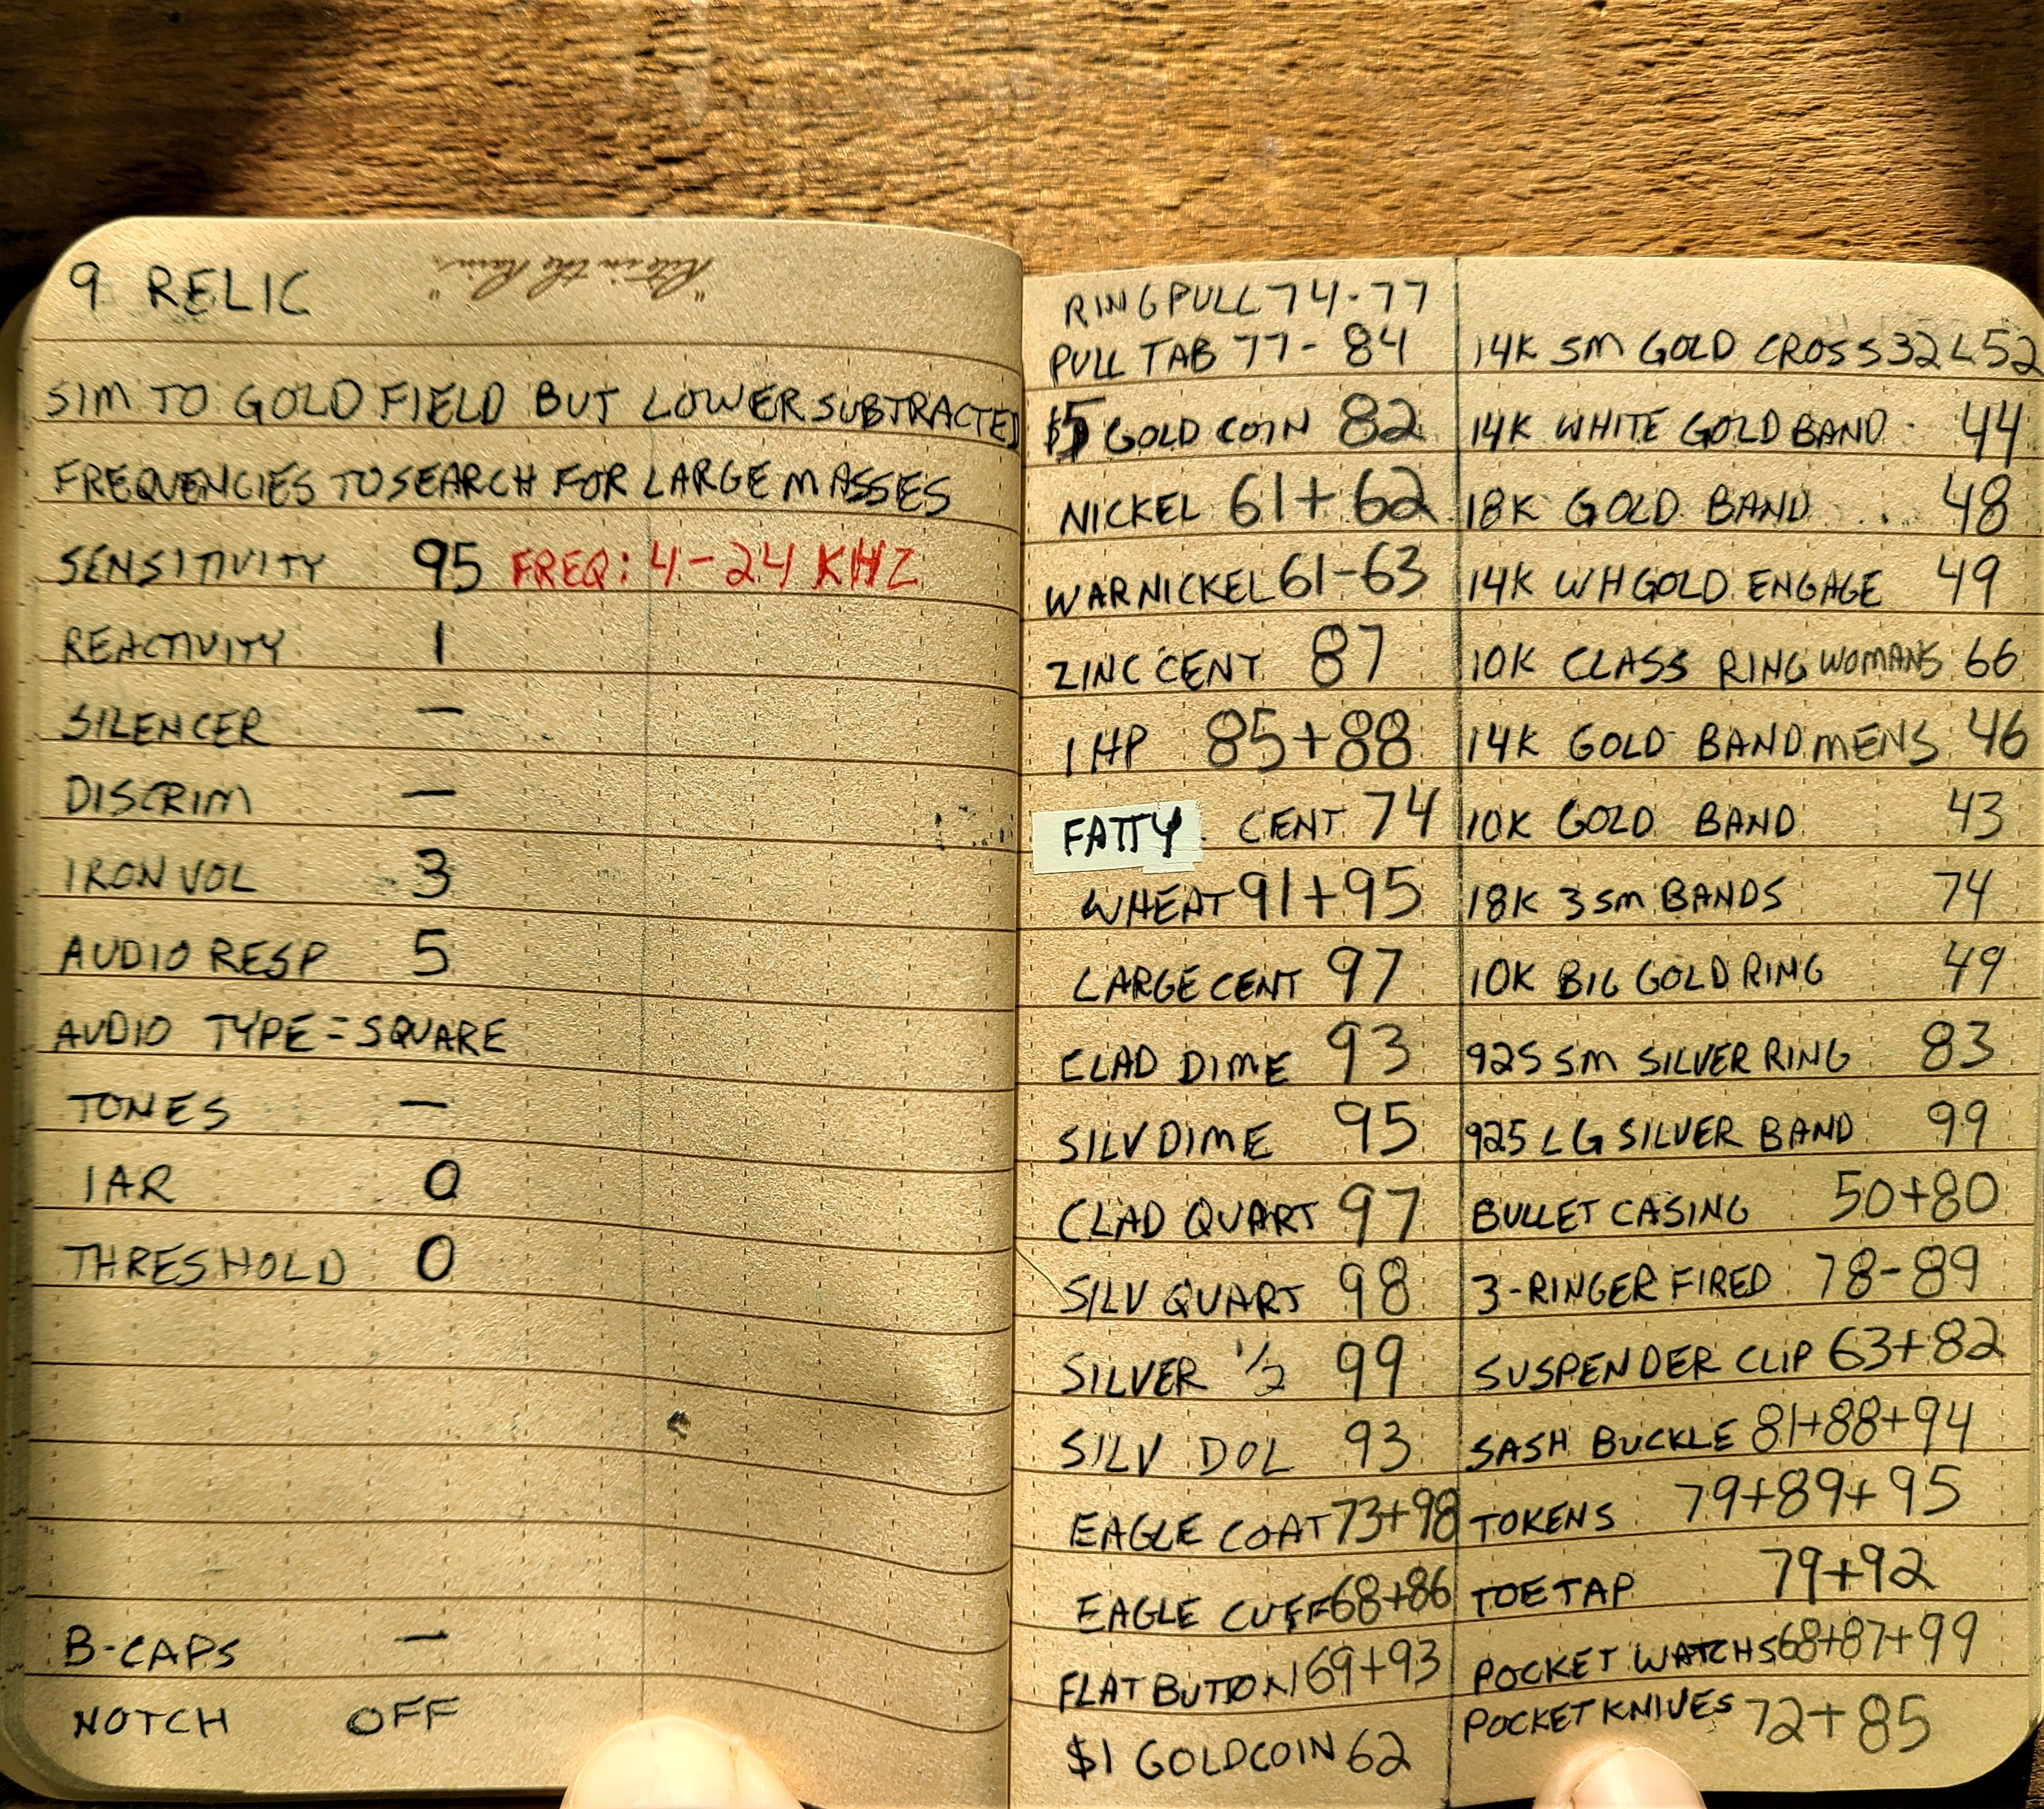 9 RELIC
"Rite in the Rain"
SIM TO GOLD FIELD BUT LOWER SUBTRACTED
FREQUENCIES TO SEARCH FOR LARGE MASSES
SENSITIVITY 95 FREQ: 4-24 KHZ
REACTIVITY 1
SILENCER —
DISCRIM —
IRON VOL 3
AUDIO RESP 5
AUDIO TYPE = SQUARE
TONES —
IAR 0
THRESHOLD 0
B-CAPS —
NOTCH OFF
RING PULL 74-77
PULL TAB 77-84
$5 GOLD COIN 82
NICKEL 61+62
WAR NICKEL 61-63
ZINC CENT 87
IHP 85+88
FATTY CENT 74
WHEAT 91+95
LARGE CENT 97
CLAD DIME 93
SILV DIME 95
CLAD QUART 97
SILV QUART 98
SILVER 1/2 99
SILV DOL 93
EAGLE COAT 73+98
EAGLE CUFF 68+86
FLAT BUTTON 69+93
$1 GOLD COIN 62
14K SM GOLD CROSS 32<52
14K WHITE GOLD BAND 44
18K GOLD BAND 48
14K WH GOLD ENGAGE 49
10K CLASS RING WOMANS 66
14K GOLD BAND MENS 46
10K GOLD BAND 43
18K 3 SM BANDS 74
10K BIG GOLD RING 49
925 SM SILVER RING 83
925 LG SILVER BAND 99
BULLET CASING 50+80
3-RINGER FIRED 78-89
SUSPENDER CLIP 63+82
SASH BUCKLE 81+88+94
TOKENS 79+89+95
TOE TAP 79+92
POCKET WATCHS 68+87+99
POCKET KNIVES 72+85